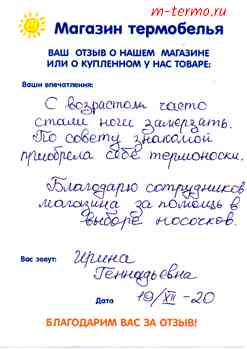 m-termo.ru
Магазин термобелья
ВАШ ОТЗЫВ О НАШЕМ МАГАЗИНЕ
ИЛИ О КУПЛЕННОМ У НАС ТОВАРЕ:
Ваши впечатления:
С возрастом часто
стали ноги замерзать.
По совету знакомой
приобрела себе термоноски.
Благодарю сотрудников
магазина за помощь в
выборе носочков.
Вас зовут: Ирина
Геннадьевна
Дата 19/XII-20
БЛАГОДАРИМ ВАС ЗА ОТЗЫВ!